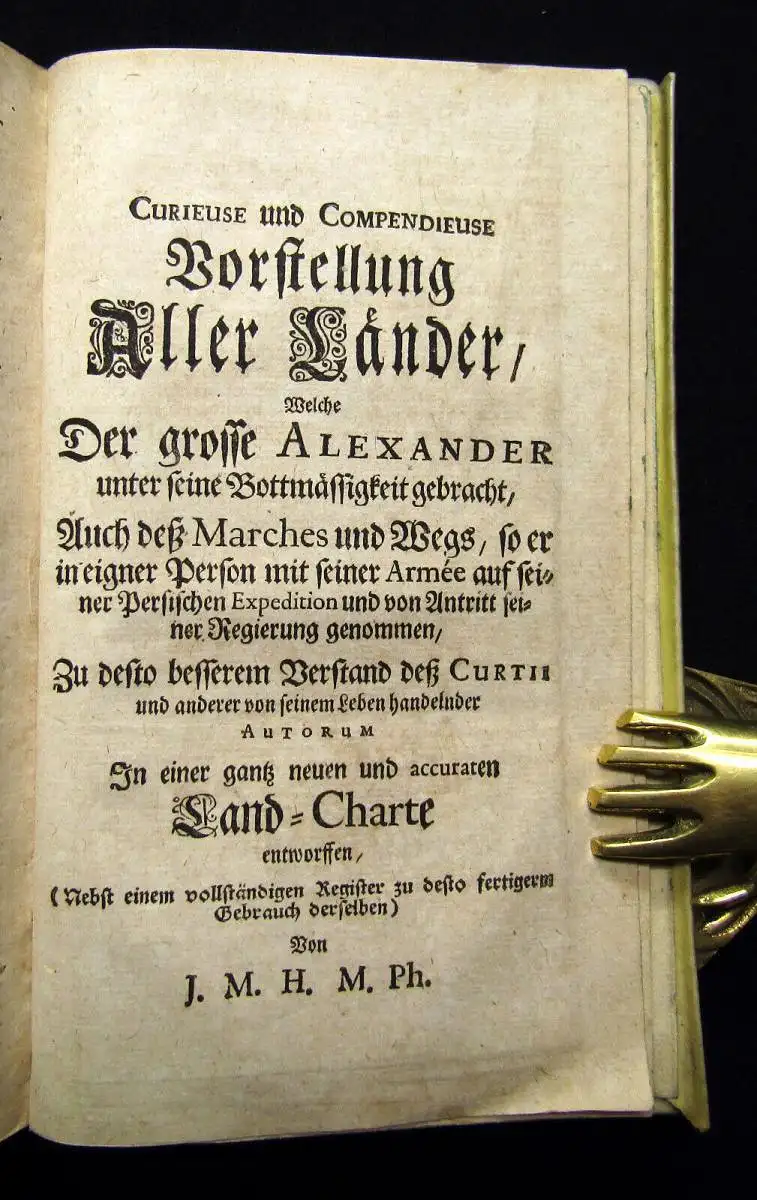 CURIEUSE und COMPENDIEUSE
Vorstellung
Aller Länder/
Welche
Der grosse ALEXANDER
unter seine Bottmässigkeit gebracht/
Auch deß Marches und Wegs/ so er
in eigner Person mit seiner Armée auf sei-
ner Persischen Expedition und von Antritt sei-
ner Regierung genommen/
Zu desto besserem Verstand deß CURTII
und anderer von seinem Leben handelnder
AUTORUM
In einer gantz neuen und accuraten
Land-Charte
entworffen/
(Nebst einem vollständigen Register zu desto fertigerm
Gebrauch derselben)
Von
J. M. H. M. Ph.